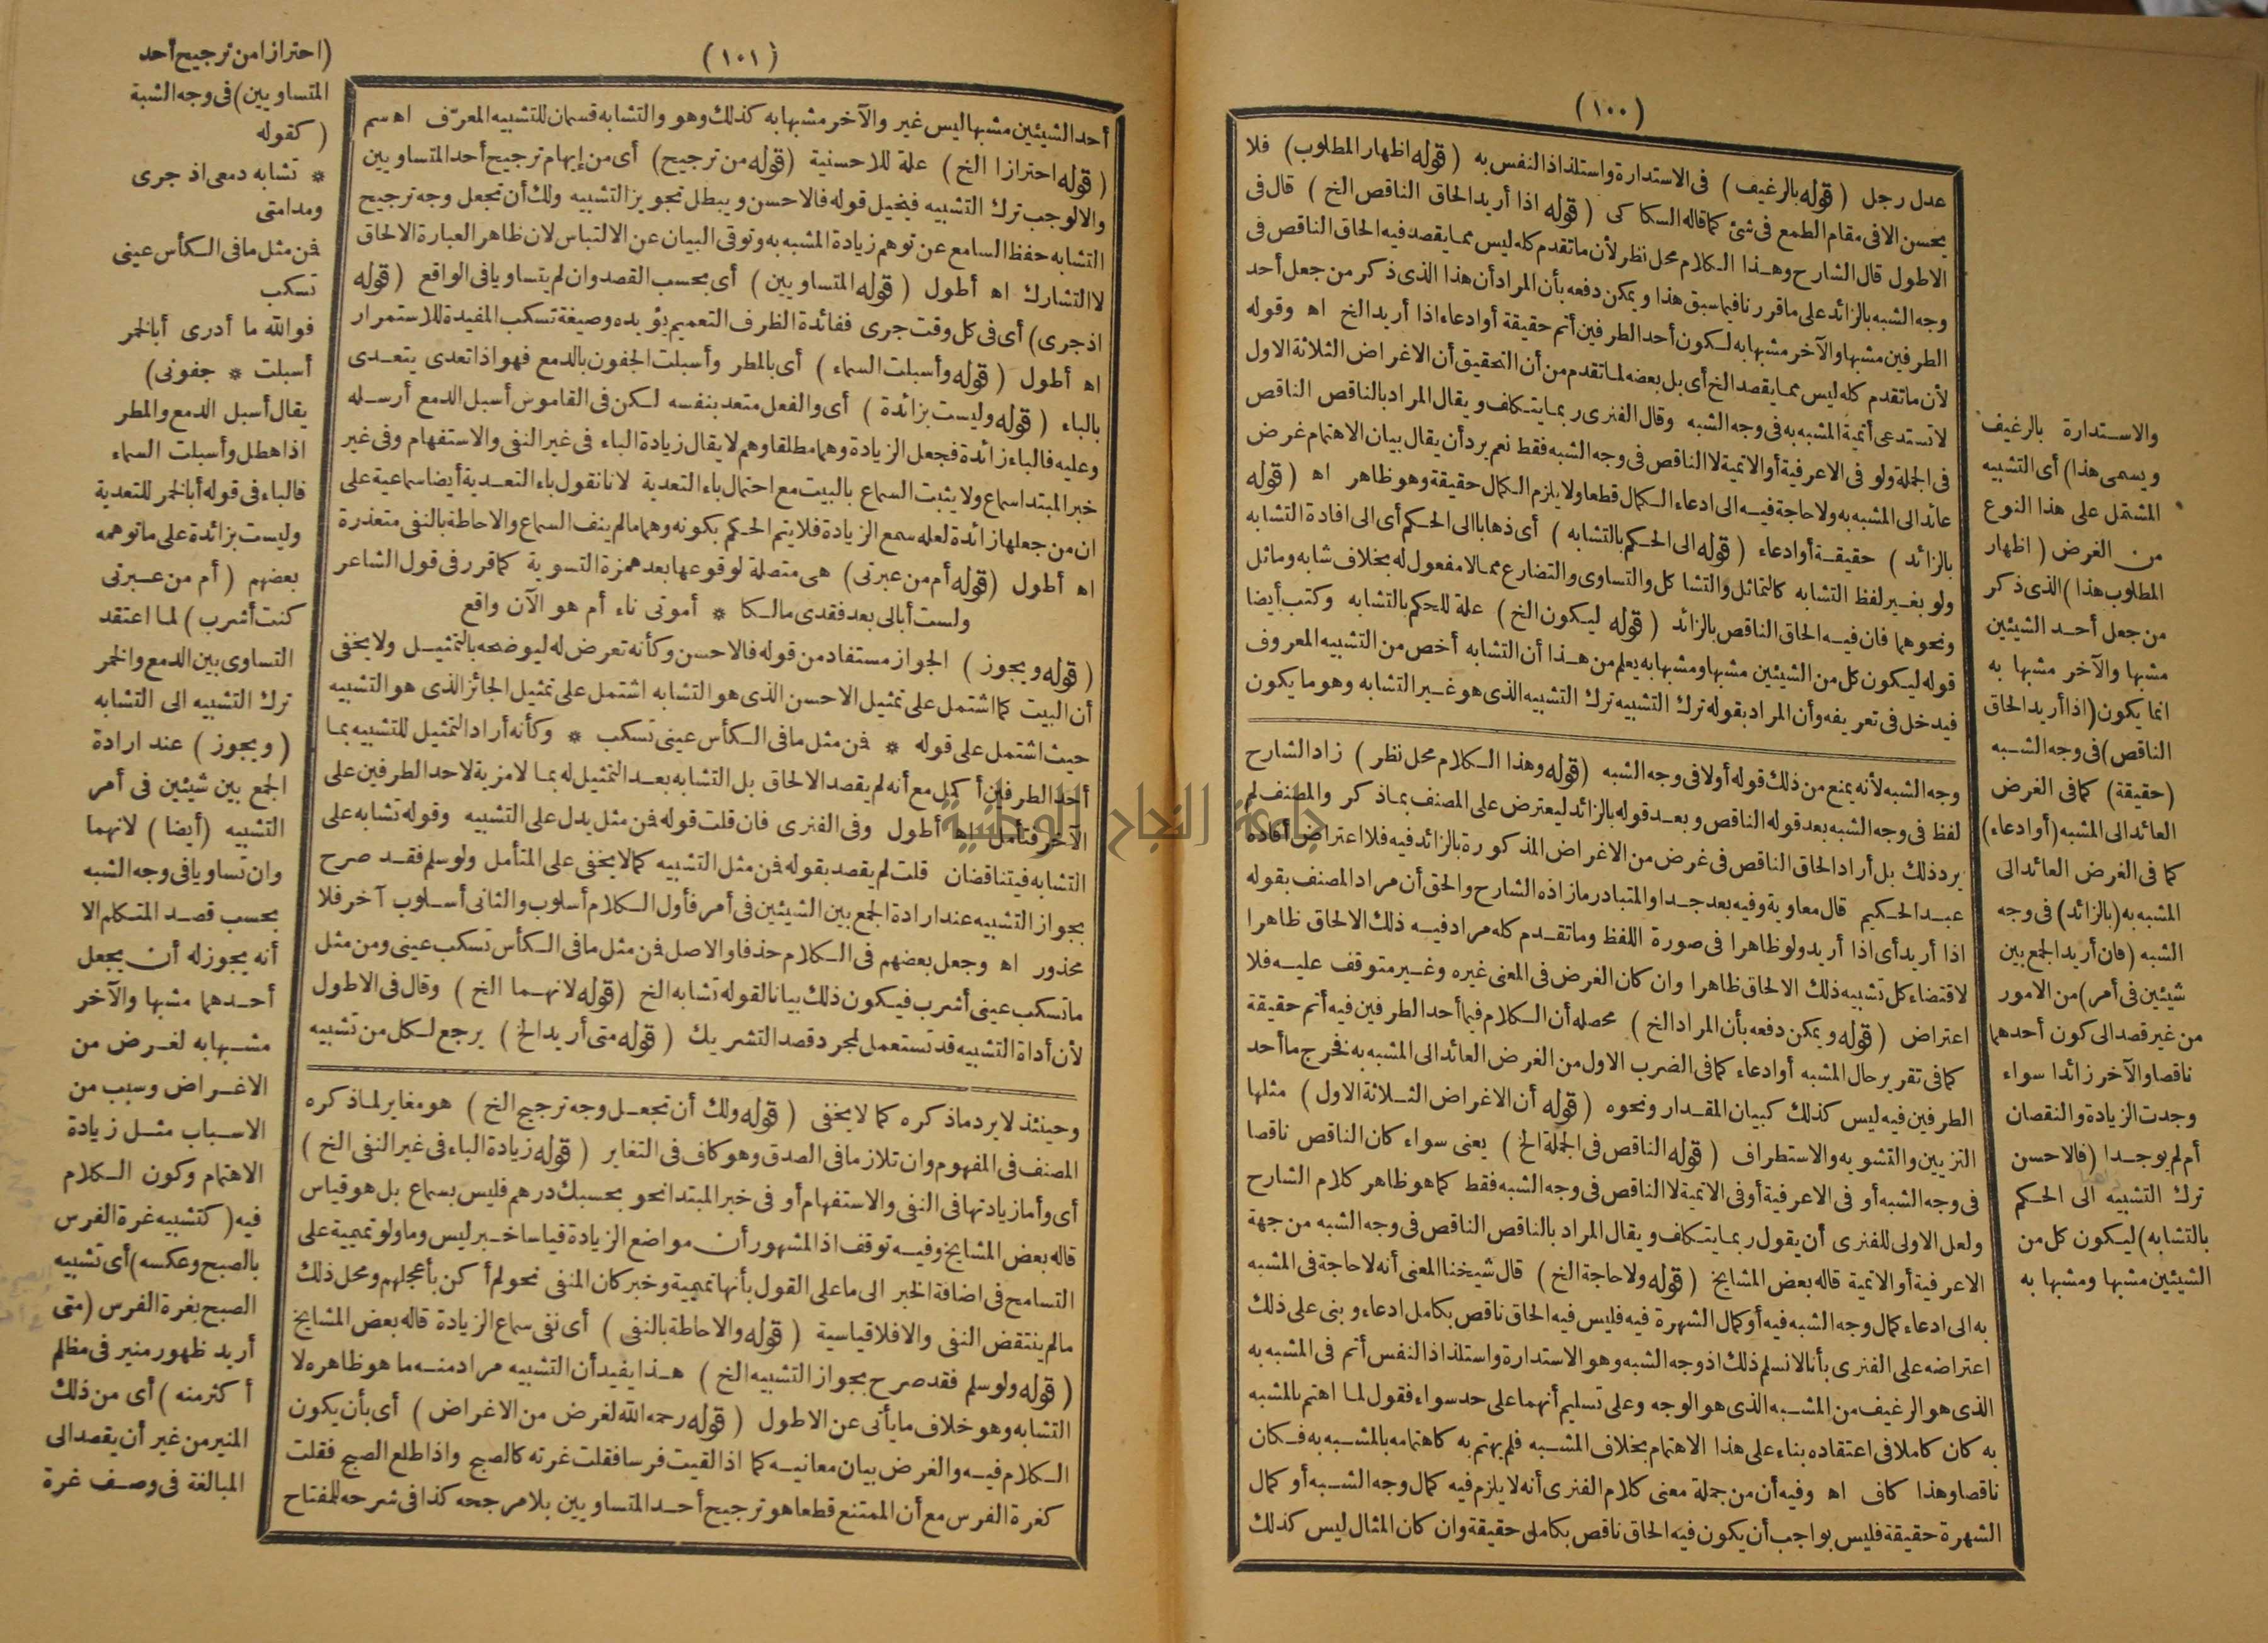 (١٠٠)
عدل رجل (قوله بالرغيف) فى الاستدارة واستلذاذ النفس به (قوله اظهار المطلوب) فلا
يحسن الا فى مقام الطمع فى شئ كما قاله السكاكى (قوله اذا أريد الحاق الناقص الخ) قال فى
الاطول قال الشارح وهذا الكلام محل نظر لأن ما تقدم كله ليس مما يقصد فيه الحاق الناقص فى
وجه الشبه بالزائد على ما قررنا فيما سبق هذا ويمكن دفعه بأن المراد أن هذا الذى ذكر من جعل أحد
الطرفين مشبها والآخر مشبها به لكون أحد الطرفين أتم حقيقة أو ادعاء اذا أريد الخ اه وقوله
لأن ما تقدم كله ليس مما يقصد الخ أى بل بعضه لما تقدم من أن التحقيق أن الاغراض الثلاثة الاول
لا تستدعى أتمية المشبه به فى وجه الشبه وقال الفنرى ربما يتكلف ويقال المراد بالناقص الناقص
فى الجملة ولو فى الاعرفية أو الاتمية لا الناقص فى وجه الشبه فقط نعم يرد أن يقال بيان الاهتمام غرض
عائد الى المشبه به ولا حاجة فيه الى ادعاء الكمال قطعا ولا يلزم الكمال حقيقة وهو ظاهر اه (قوله
بالزائد) حقيقة أو ادعاء (قوله الى الحكم بالتشابه) أى ذهابا الى الحكم أى الى افادة التشابه
ولو بغير لفظ التشابه كالتماثل والتشاكل والتساوى والتضارع مما لا مفعول له بخلاف شابه وماثل
ونحوهما فان فيه الحاق الناقص بالزائد (قوله ليكون الخ) علة للحكم بالتشابه وكتب أيضا
قوله ليكون كل من الشيئين مشبها ومشبها به يعلم من هذا أن التشابه أخص من التشبيه المعروف
فيدخل فى تعريفه وأن المراد بقوله ترك التشبيه ترك التشبيه الذى هو غير التشابه وهو ما يكون
وجه الشبه لأنه يمنع من ذلك قوله أولا فى وجه الشبه (قوله وهذا الكلام محل نظر) زاد الشارح
لفظ فى وجه الشبه بعد قوله الناقص وبعد قوله بالزائد ليعترض على المصنف بما ذكر والمصنف لم
يرد ذلك بل أراد الحاق الناقص فى غرض من الاغراض المذكورة بالزائد فيه فلا اعتراض أفاده
عبد الحكيم قال معاوية وفيه بعد جدا والمتبادر ما زاده الشارح والحق أن مراد المصنف بقوله
اذا أريد أى اذا أريد ولو ظاهرا فى صورة اللفظ وما تقدم كله مراد فيه ذلك الالحاق ظاهرا
لاقتضاء كل تشبيه ذلك الالحاق ظاهرا وان كان الغرض فى المعنى غيره وغير متوقف عليه فلا
اعتراض (قوله ويمكن دفعه بأن المراد الخ) محصله أن الكلام فيما أحد الطرفين فيه أتم حقيقة
كما فى تقرير حال المشبه أو ادعاء كما فى الضرب الاول من الغرض العائد الى المشبه به فخرج ما أحد
الطرفين فيه ليس كذلك كبيان المقدار ونحوه (قوله أن الاغراض الثلاثة الاول) مثلها
التزيين والتشويه والاستطراف (قوله الناقص فى الجملة الخ) يعنى سواء كان الناقص ناقصا
فى وجه الشبه أو فى الاعرفية أو فى الاتمية لا الناقص فى وجه الشبه فقط كما هو ظاهر كلام الشارح
ولعل الاولى للفنرى أن يقول ربما يتكلف ويقال المراد بالناقص الناقص فى وجه الشبه من جهة
الاعرفية أو الاتمية قاله بعض المشايخ (قوله ولا حاجة الخ) قال شيخنا المعنى أنه لا حاجة فى المشبه
به الى ادعاء كمال وجه الشبه فيه أو كمال الشهرة فيه فليس فيه الحاق ناقص بكامل ادعاء وبنى على ذلك
اعتراضه على الفنرى بأنا لا نسلم ذلك اذ وجه الشبه وهو الاستدارة واستلذاذ النفس أتم فى المشبه به
الذى هو الرغيف من المشبه الذى هو الوجه وعلى تسليم أنهما على حد سواء فقول لما اهتم بالمشبه
به كان كاملا فى اعتقاده بناء على هذا الاهتمام بخلاف المشبه فلم يهتم به كاهتمامه بالمشبه به فكان
ناقصا وهذا كاف اه وفيه أن من جملة معنى كلام الفنرى أنه لا يلزم فيه كمال وجه الشبه أو كمال
الشهرة حقيقة فليس بواجب أن يكون فيه الحاق ناقص بكامل حقيقة وان كان المثال ليس كذلك
والاستدارة بالرغيف
ويسمى هذا) أى التشبيه
المشتمل على هذا النوع
من الغرض (اظهار
المطلوب هذا) الذى ذكر
من جعل أحد الشيئين
مشبها والآخر مشبها به
انما يكون (اذا أريد الحاق
الناقص) فى وجه الشبه
(حقيقة) كما فى الغرض
العائد الى المشبه (أو ادعاء)
كما فى الغرض العائد الى
المشبه به (بالزائد) فى وجه
الشبه (فان أريد الجمع بين
شيئين فى أمر) من الامور
من غير قصد الى كون أحدهما
ناقصا والآخر زائدا سواء
وجدت الزيادة والنقصان
أم لم يوجدا (فالاحسن
ترك التشبيه الى الحكم
بالتشابه) ليكون كل من
الشيئين مشبها ومشبها به
(١٠١)
أحد الشيئين مشبها ليس غير والآخر مشبها به كذلك وهو والتشابه قسمان للتشبيه المعرّف اه سم
(قوله احترازا الخ) علة للاحسنية (قوله من ترجيح) أى من إيهام ترجيح أحد المتساويين
والا لوجب ترك التشبيه فيخيل قوله فالاحسن ويبطل تجويز التشبيه ولك أن تجعل وجه ترجيح
التشابه حفظ السامع عن توهم زيادة المشبه به وتوقى البيان عن الالتباس لان ظاهر العبارة الالحاق
لا التشارك اه أطول (قوله المتساويين) أى بحسب القصد وان لم يتساويا فى الواقع (قوله
اذ جرى) أى فى كل وقت جرى ففائدة الظرف التعميم يؤيده وصيغة تسكب المفيدة للاستمرار
اه أطول (قوله وأسبلت السماء) أى بالمطر وأسبلت الجفون بالدمع فهو اذا تعدى يتعدى
بالباء (قوله وليست بزائدة) أى والفعل متعد بنفسه لكن فى القاموس أسبل الدمع أرسله
وعليه فالباء زائدة فجعل الزيادة وهما مطلقا وهم لا يقال زيادة الباء فى غير النفى والاستفهام وفى غير
خبر المبتدا سماع ولا يثبت السماع بالبيت مع احتمال باء التعدية لانا نقول باء التعدية أيضا سماعية على
ان من جعلها زائدة لعله سمع الزيادة فلا يتم الحكم بكونه وهما ما لم ينف السماع والاحاطة بالنفى متعذرة
اه أطول (قوله أم من عبرتى) هى متصلة لوقوعها بعد همزة التسوية كما قرر فى قول الشاعر
ولست أبالى بعد فقدى مالكا * أموتى ناء أم هو الآن واقع
(قوله ويجوز) الجواز مستفاد من قوله فالاحسن وكأنه تعرض له ليوضحه بالتمثيل ولا يخفى
أن البيت كما اشتمل على تمثيل الاحسن الذى هو التشابه اشتمل على تمثيل الجائز الذى هو التشبيه
حيث اشتمل على قوله * فمن مثل ما فى الكأس عينى تسكب * وكأنه أراد التمثيل للتشبيه بما
أحد الطرفين أكمل مع أنه لم يقصد الالحاق بل التشابه بعد التمثيل له بما لا مزية لاحد الطرفين على
الآخر فتأمل اه أطول وفى الفنرى فان قلت قوله فمن مثل يدل على التشبيه وقوله تشابه على
التشابه فيتناقضان قلت لم يقصد بقوله فمن مثل التشبيه كما لا يخفى على المتأمل ولو سلم فقد صرح
بجواز التشبيه عند ارادة الجمع بين الشيئين فى أمر فأول الكلام أسلوب والثانى أسلوب آخر فلا
محذور اه وجعل بعضهم فى الكلام حذفا والاصل فمن مثل ما فى الكأس تسكب عينى ومن مثل
ما تسكب عينى أشرب فيكون ذلك بيانا لقوله تشابه الخ (قوله لانهما الخ) وقال فى الاطول
لأن أداة التشبيه قد تستعمل لمجرد قصد التشريك (قوله متى أريد الخ) يرجع لكل من تشبيه
وحينئذ لا يرد ما ذكره كما لا يخفى (قوله ولك أن تجعل وجه ترجيح الخ) هو مغاير لما ذكره
المصنف فى المفهوم وان تلازما فى الصدق وهو كاف فى التغاير (قوله زيادة الباء فى غير النفى الخ)
أى وأما زيادتها فى النفى والاستفهام أو فى خبر المبتدا نحو بحسبك درهم فليس بسماع بل هو قياس
قاله بعض المشايخ وفيه توقف اذ المشهور أن مواضع الزيادة قياسا خبر ليس وما ولو تميمية على
التسامح فى اضافة الخبر الى ما على القول بأنها تميمية وخبر كان المنفى نحو لم أكن بأعجلهم ومحل ذلك
ما لم ينتقض النفى والا فلا قياسية (قوله والاحاطة بالنفى) أى نفى سماع الزيادة قاله بعض المشايخ
(قوله ولو سلم فقد صرح بجواز التشبيه الخ) هذا يفيد أن التشبيه مراد منه ما هو ظاهره لا
التشابه وهو خلاف ما يأتى عن الاطول (قوله رحمه الله لغرض من الاغراض) أى بأن يكون
الكلام فيه والغرض بيان معانيه كما اذا لقيت فرسا فقلت غرته كالصبح واذا طلع الصبح فقلت
كغرة الفرس مع أن الممتنع قطعا هو ترجيح أحد المتساويين بلا مرجحه كذا فى شرحه للمفتاح
(احترازا من ترجيح أحد
المتساويين) فى وجه الشبة
(كقوله
* تشابه دمعى اذ جرى
ومدامتى
فمن مثل ما فى الكأس عينى
تسكب
فوالله ما أدرى أبالخمر
أسبلت * جفونى)
يقال أسبل الدمع والمطر
اذا هطل وأسبلت السماء
فالباء فى قوله أبالخمر للتعدية
وليست بزائدة على ما توهمه
بعضهم (أم من عبرتى
كنت أشرب) لما اعتقد
التساوى بين الدمع والخمر
ترك التشبيه الى التشابه
(ويجوز) عند ارادة
الجمع بين شيئين فى أمر
التشبيه (أيضا) لانهما
وان تساويا فى وجه الشبه
بحسب قصد المتكلم الا
أنه يجوز له أن يجعل
أحدهما مشبها والآخر
مشبها به لغرض من
الاغراض وسبب من
الاسباب مثل زيادة
الاهتمام وكون الكلام
فيه (كتشبيه غرة الفرس
بالصبح وعكسه) أى تشبيه
الصبح بغرة الفرس (متى
أريد ظهور منير فى مظلم
أكثر منه) أى من ذلك
المنير من غير أن يقصد الى
المبالغة فى وصف غرة
جامعة النجاح الوطنية